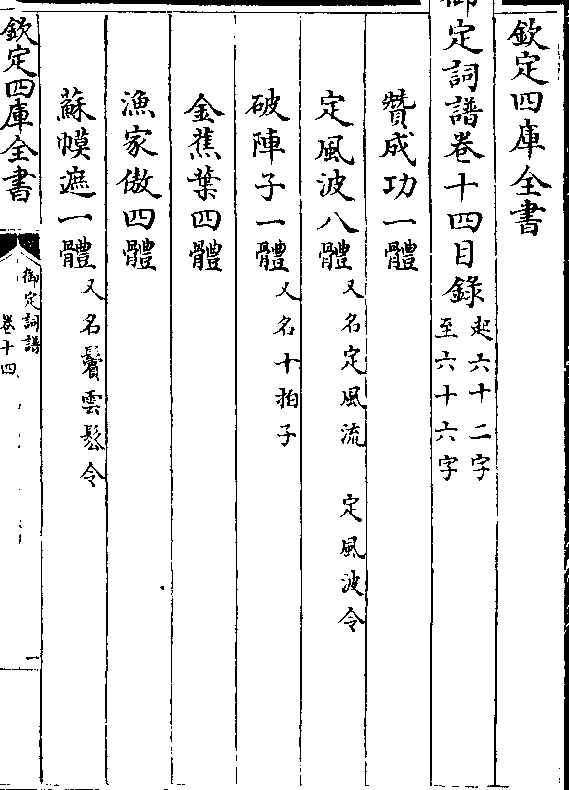 欽定四庫全書
御定詞譜卷十四目錄起六十二字至六十六字
贊成功一體
定風波八體又名定風流 定風波令
破陣子一體又名十拍子
金蕉葉四體
漁家傲四體
蘇幙遮一體又名鬢雲鬆令
欽定四庫全書
御定詞譜
卷十四
一